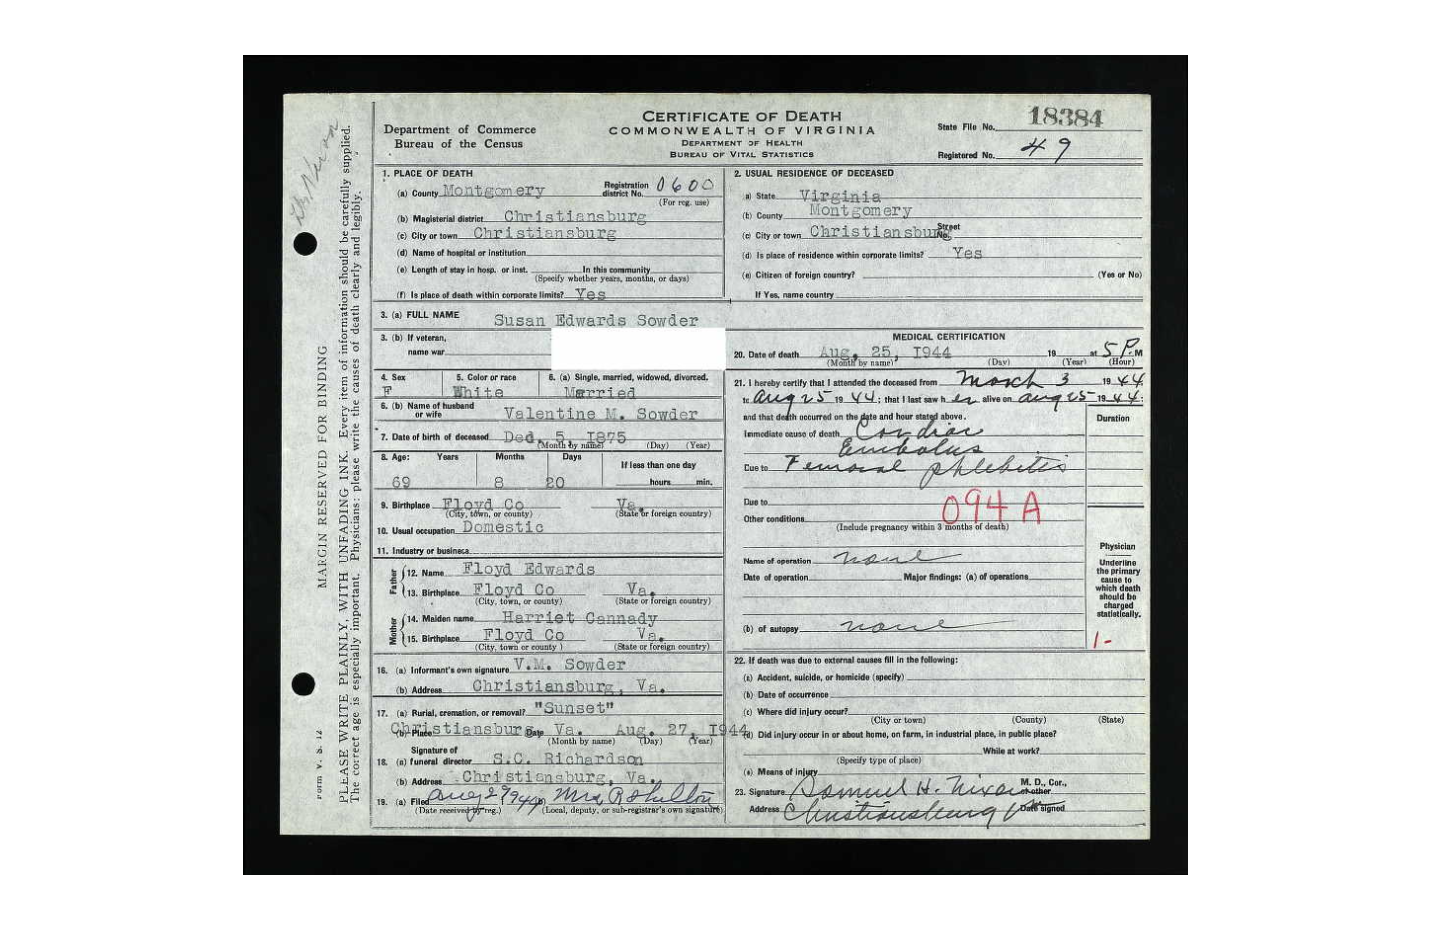 Dr. Nixon
MARGIN RESERVED FOR BINDING
PLEASE WRITE PLAINLY, WITH UNFADING INK. Every item of information should be carefully supplied.
The correct age is especially important. Physicians: please write the causes of death clearly and legibly.
Form V. S. 12
Department of Commerce
Bureau of the Census
CERTIFICATE OF DEATH
COMMONWEALTH OF VIRGINIA
DEPARTMENT OF HEALTH
BUREAU OF VITAL STATISTICS
State File No. 18384
Registered No. 49
1. PLACE OF DEATH
(a) County Montgomery Registration district No. 0600
(For reg. use)
(b) Magisterial district Christiansburg
(c) City or town Christiansburg
(d) Name of hospital or institution
(e) Length of stay in hosp. or inst. In this community
(Specify whether years, months, or days)
(f) Is place of death within corporate limits? Yes
2. USUAL RESIDENCE OF DECEASED
(a) State Virginia
(b) County Montgomery
(c) City or town Christiansburg Street No.
(d) Is place of residence within corporate limits? Yes
(e) Citizen of foreign country? (Yes or No)
If Yes, name country
3. (a) FULL NAME Susan Edwards Sowder
3. (b) If veteran,
name war
4. Sex 5. Color or race 6. (a) Single, married, widowed, divorced.
F White Married
6. (b) Name of husband or wife Valentine M. Sowder
7. Date of birth of deceased Ded. 5, I875
(Month by name) (Day) (Year)
8. Age: Years Months Days If less than one day
69 8 20 hours min.
9. Birthplace Floyd Co Va.
(City, town, or county) (State or foreign country)
10. Usual occupation Domestic
11. Industry or business
Father
12. Name Floyd Edwards
13. Birthplace Floyd Co Va.
(City, town, or county) (State or foreign country)
Mother
14. Maiden name Harriet Cannady
15. Birthplace Floyd Co Va.
(City, town, or county ) (State or foreign country)
16. (a) Informant's own signature V.M. Sowder
(b) Address Christiansburg, Va.
17. (a) Burial, cremation, or removal? "Sunset"
(b) Place Christiansburg Date Va. Aug. 27, I944
(Month by name) (Day) (Year)
Signature of
18. (a) funeral director S.C. Richardson
(b) Address Christiansburg, Va.
19. (a) Filed Aug 29 1944 (b) Mrs R Shelton
(Date received by reg.) (Local, deputy, or sub-registrar's own signature)
MEDICAL CERTIFICATION
20. Date of death Aug, 25, I944 19 at 5 P.M
(Month by name) (Day) (Year) (Hour)
21. I hereby certify that I attended the deceased from March 3 1944
to Aug 25 1944; that I last saw her alive on Aug 25 1944;
and that death occurred on the date and hour stated above.
Duration
Immediate cause of death Cardiac
Embolus
Due to Femoral phlebitis
Due to
094 A
Other conditions
(Include pregnancy within 3 months of death)
Name of operation none
Date of operation Major findings: (a) of operations
(b) of autopsy none
Physician
Underline
the primary
cause to
which death
should be
charged
statistically.
1-
22. If death was due to external causes fill in the following:
(a) Accident, suicide, or homicide (specify)
(b) Date of occurrence
(c) Where did injury occur?
(City or town) (County) (State)
(d) Did injury occur in or about home, on farm, in industrial place, in public place?
While at work?
(Specify type of place)
(e) Means of injury
23. Signature Samuel H. Nixon M. D., Cor., or other
Address Christiansburg Date signed